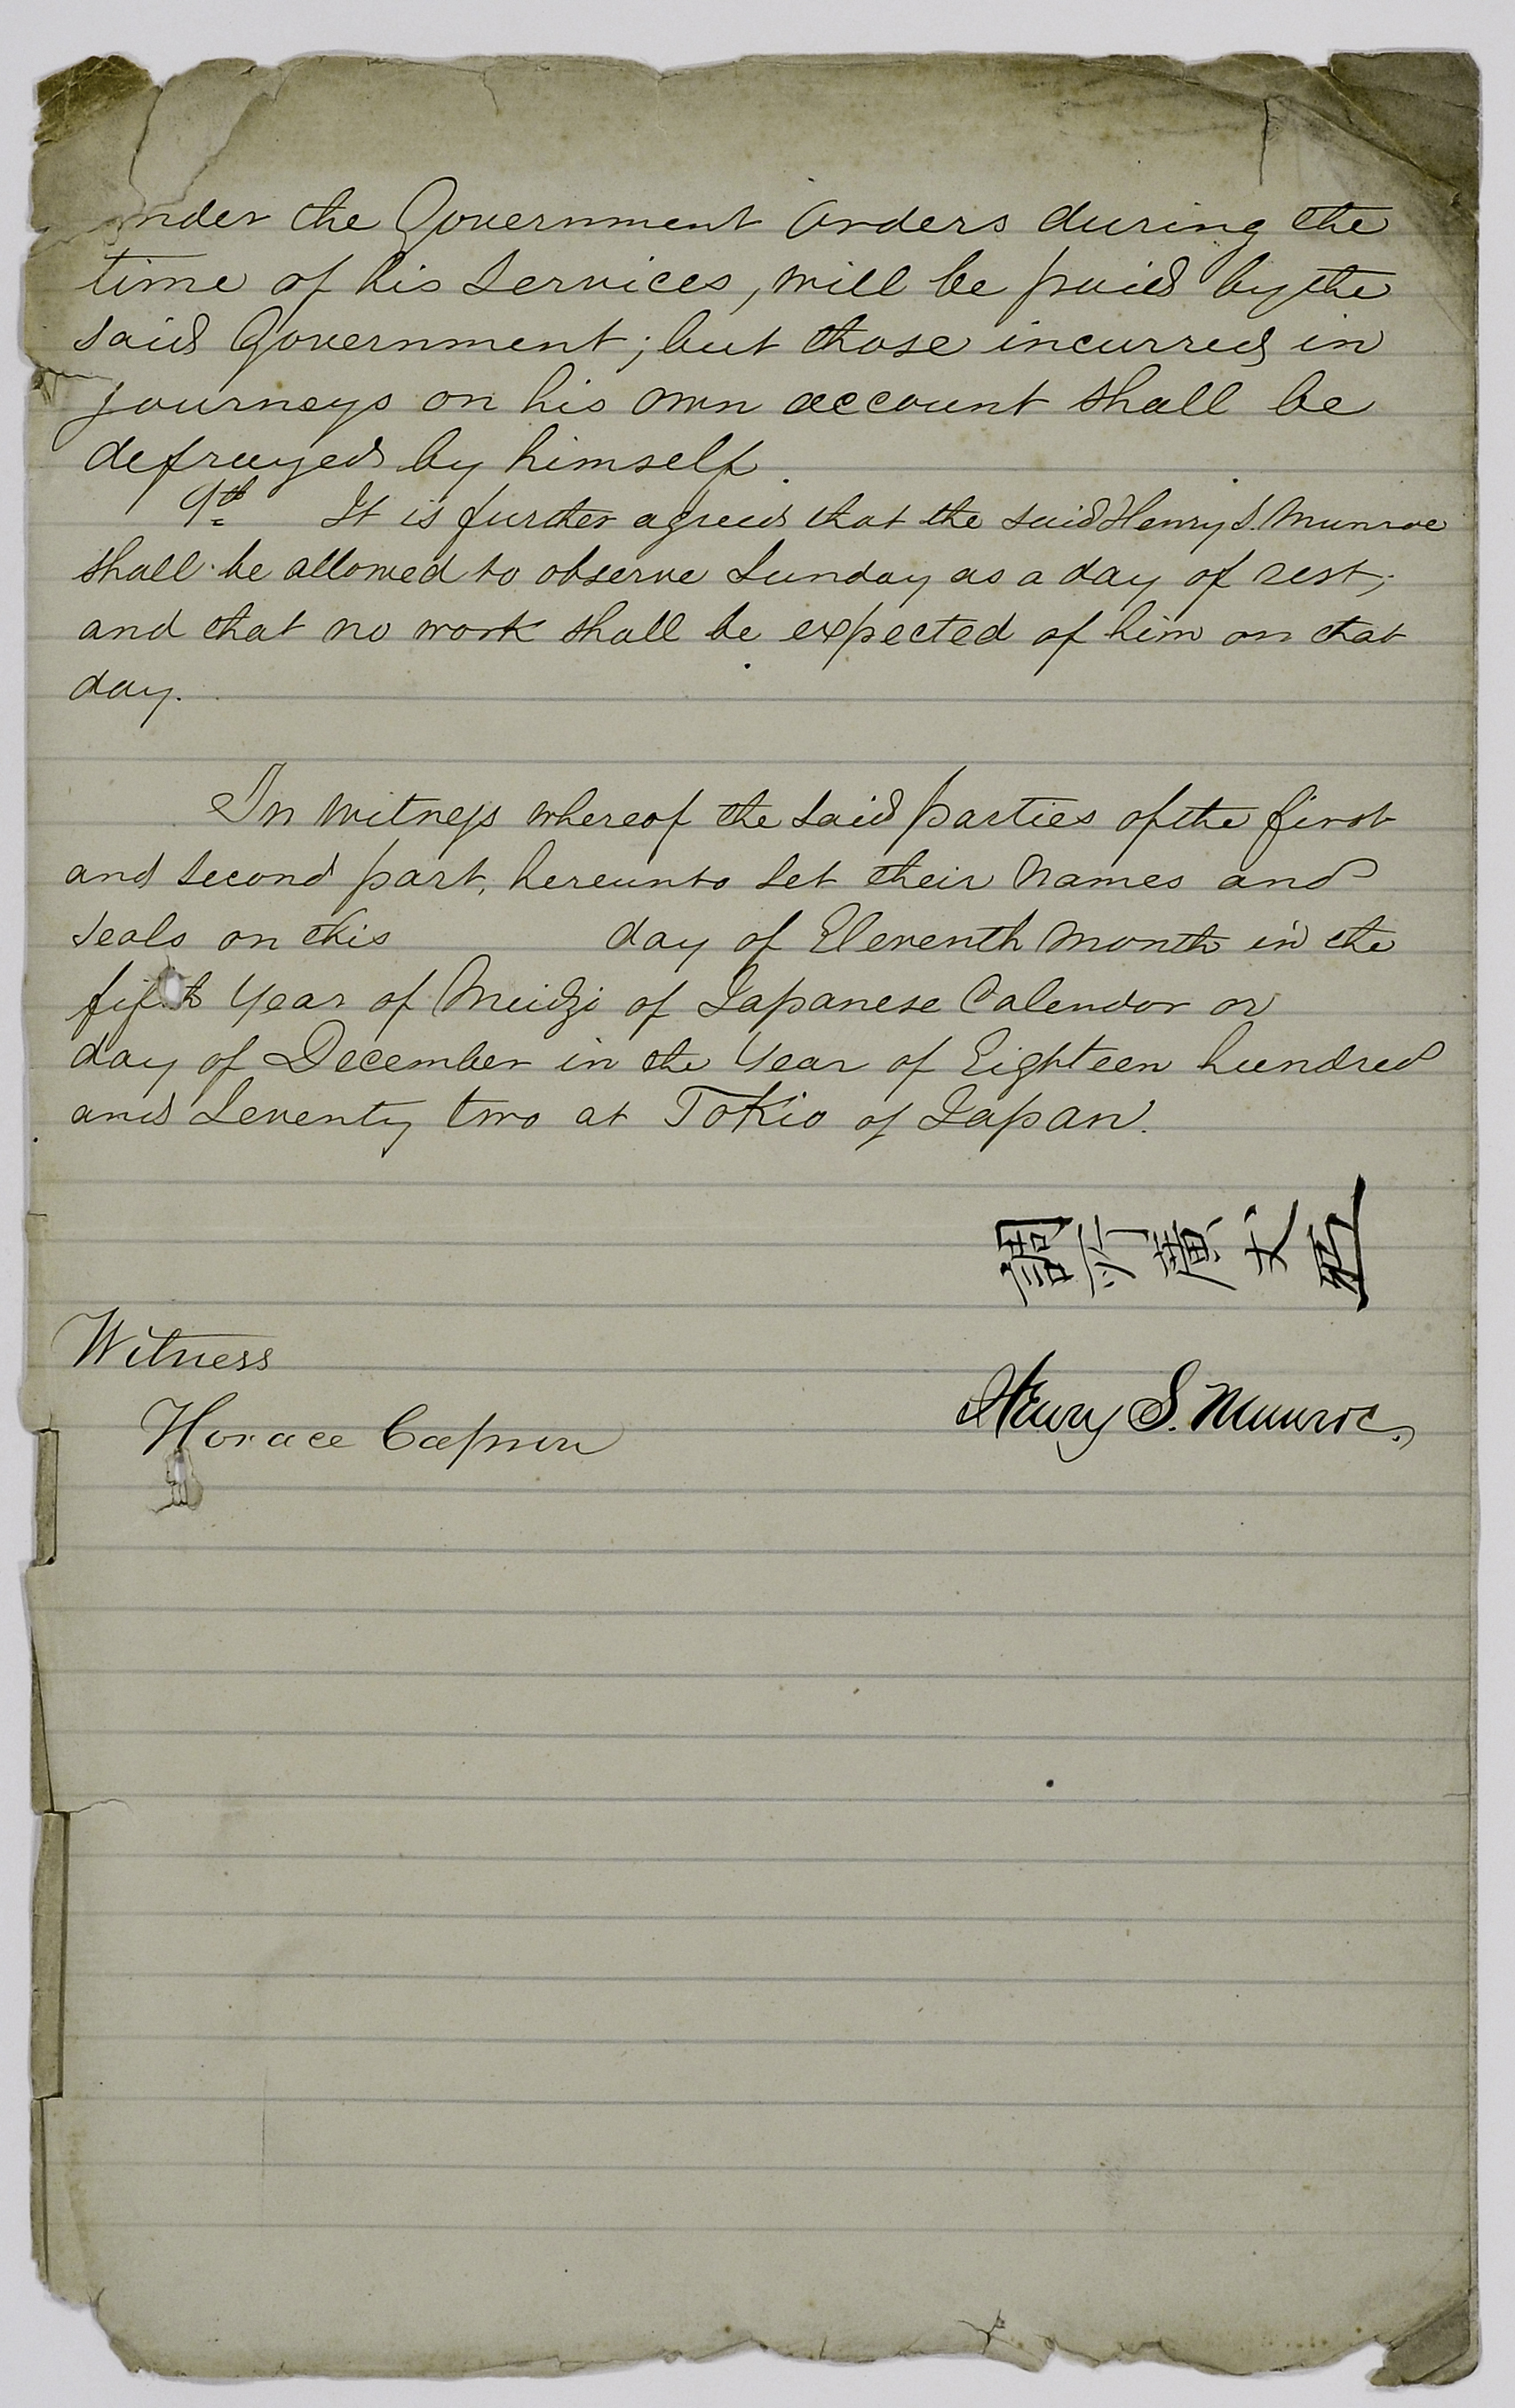 under the Government Orders during the
time of his Services, will be paid by the
said Government; but those incurred in
journeys on his own account shall be
defrayed by himself.
9th It is further agreed that the said Henry S. Munroe
shall be allowed to observe Sunday as a day of rest;
and that no work shall be expected of him on that
day.
In witness whereof the said parties of the first
and second part, hereunto set their names and
seals on this day of Eleventh month in the
fifth Year of Meidzi of Japanese Calendar or
day of December in the Year of Eighteen hundred
and Seventy two at Tokio of Japan.
調所廣丈
Witness
Henry S. Munroe.
Horace Capron